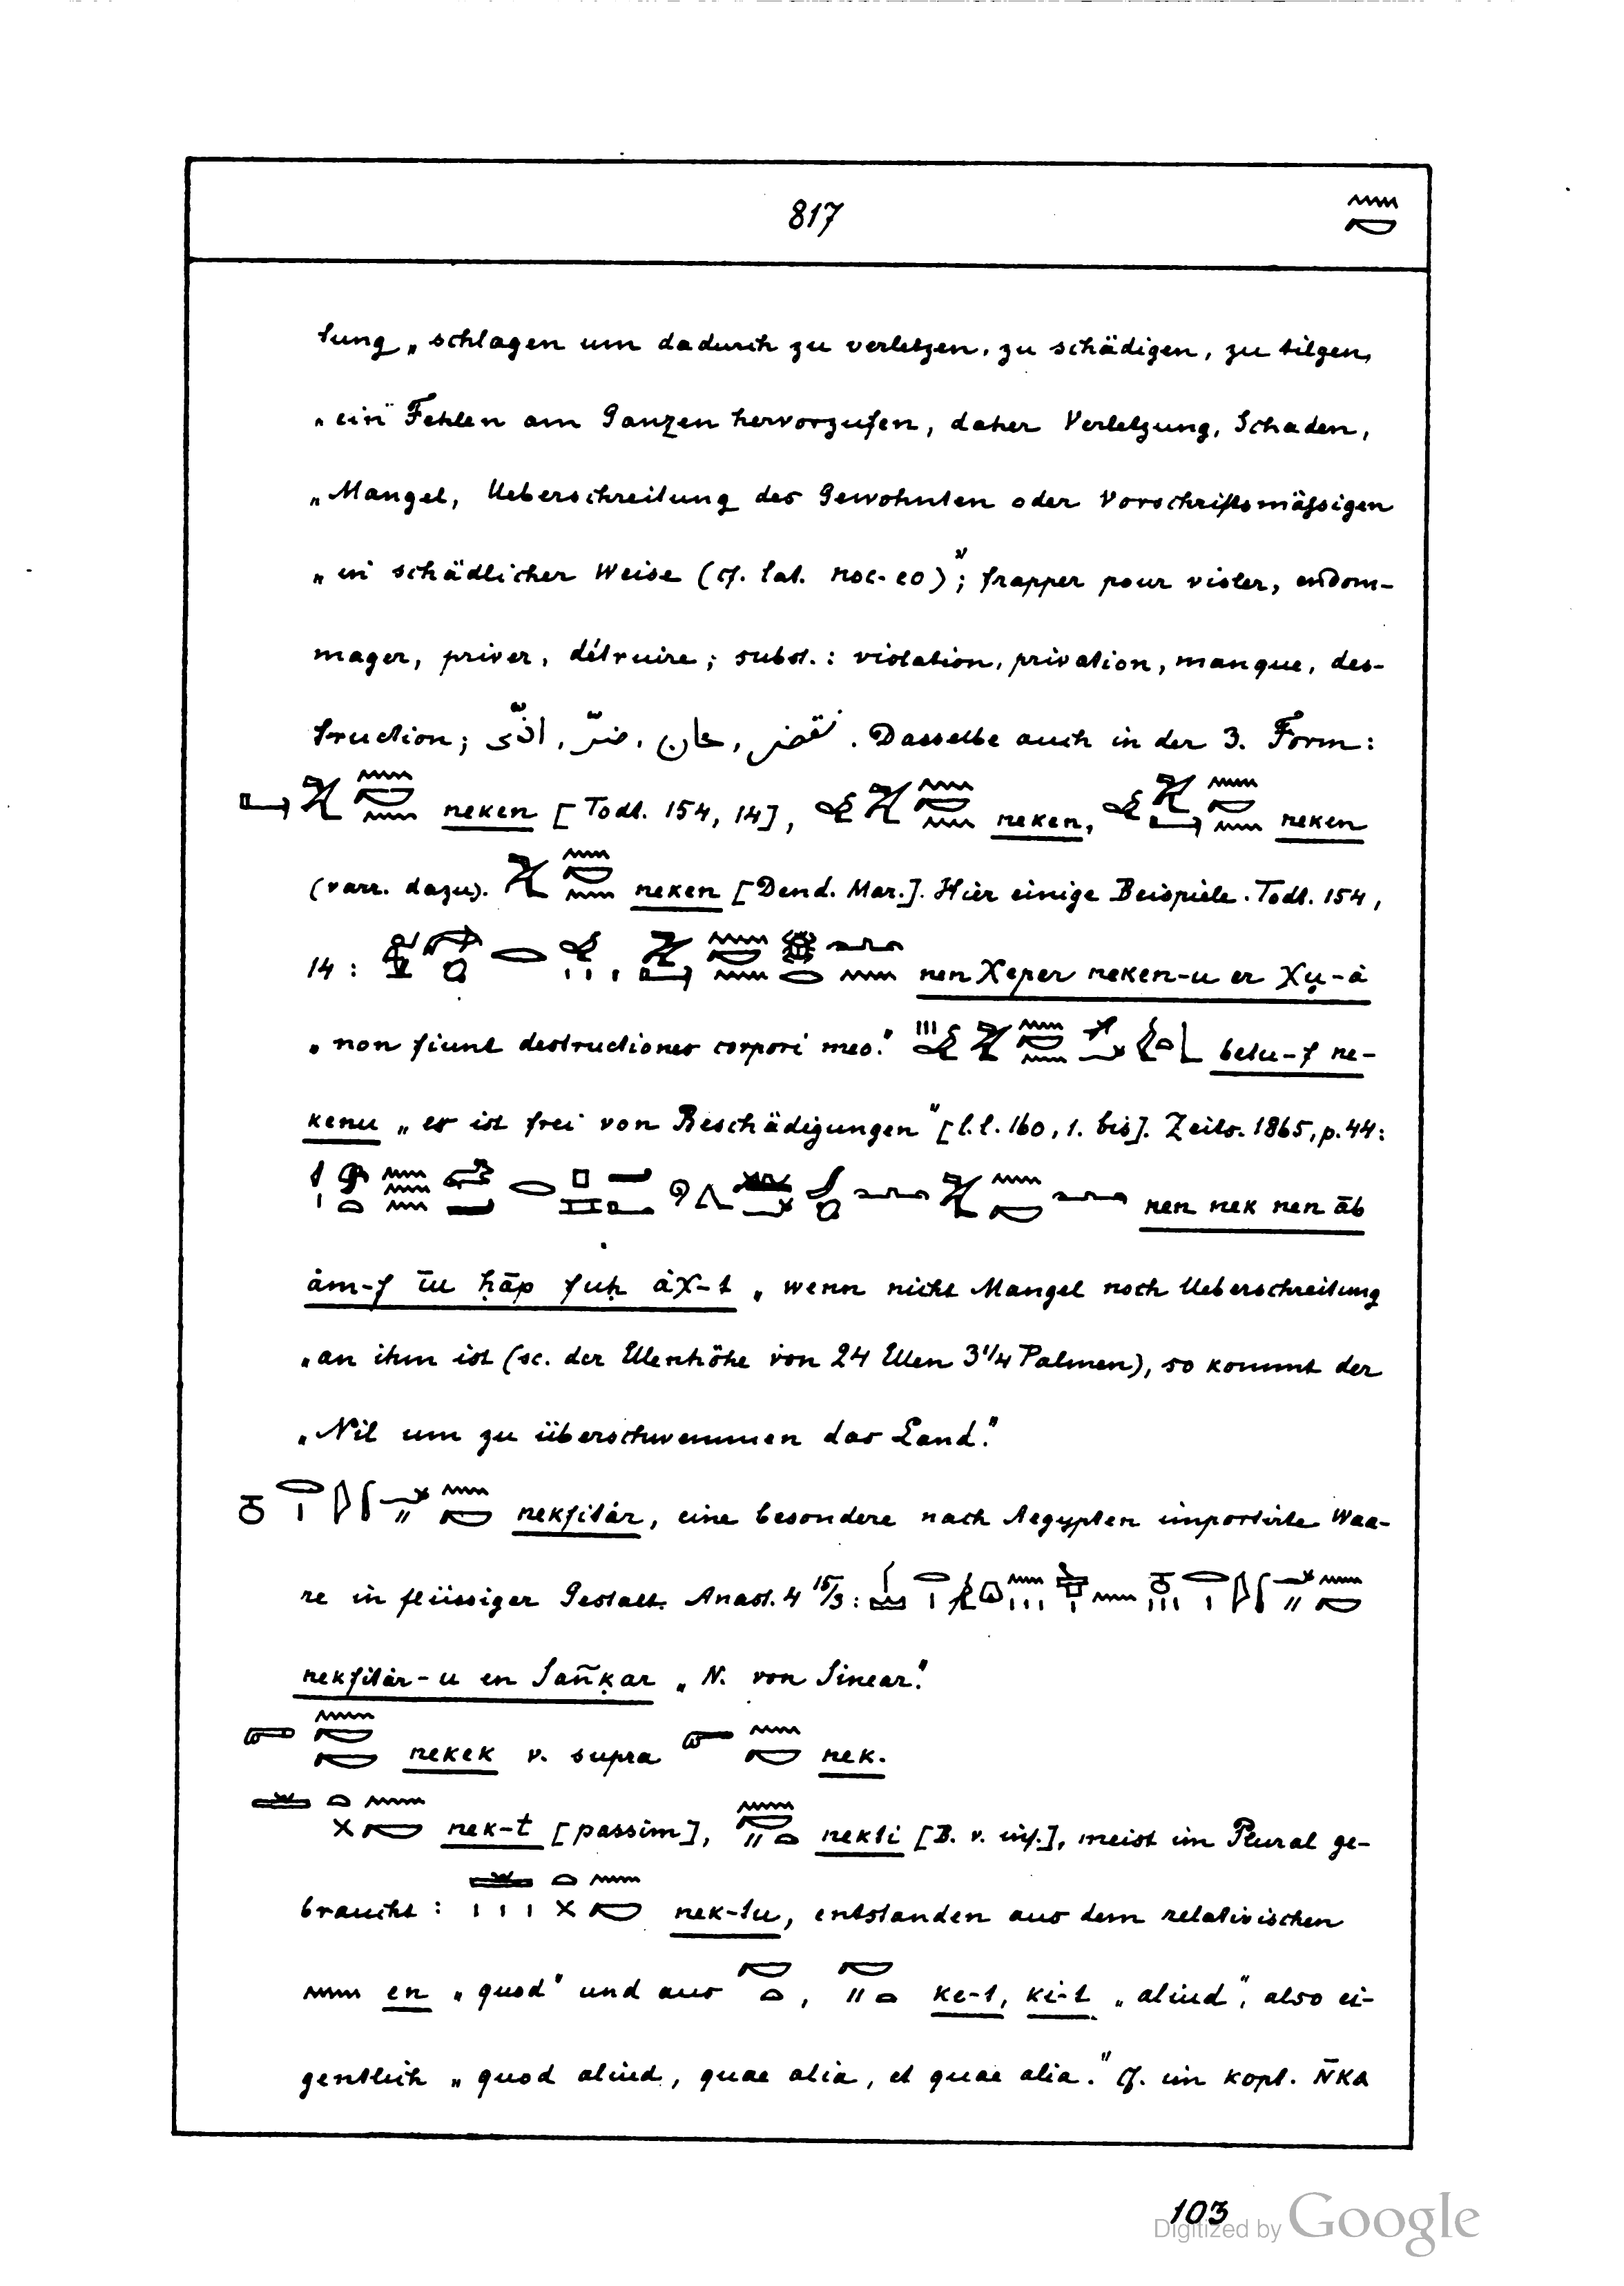 817
tung „schlagen um dadurch zu verletzen, zu schädigen, zu tilgen,
„ein Fehlen am Ganzen hervorzufen, daher Verletzung, Schaden,
„Mangel, Ueberschreitung des Gewohnten oder Vorschriftsmäßigen
„in schädlicher Weise (cf. lat. noc-eo)"; frapper pour violer, endom-
mager, priver, détruire; subst.: violation, privation, manque, des-
truction; نقض, خان, ضرّ, اذّى. Dasselbe auch in der 3. Form:
neken [Todt. 154, 14], neken, neken
(varr. dazu). neken [Dend. Mar.]. Hier einige Beispiele. Todt. 154,
14: nen χeper neken-u er χu̯-à
„non fiunt destructiones corpori meo." betu-f ne-
kenu „er ist frei von Beschädigungen" [l.l. 160, 1. bis]. Zeits. 1865, p. 44:
nen nek nen āb
àm-f īu ḥāp fuḥ àχ-t „wenn nicht Mangel noch Ueberschreitung
„an ihm ist (sc. der Ellenhöhe von 24 Ellen 3¼ Palmen), so kommt der
„Nil um zu überschwemmen das Land."
nekfitàr, eine besondere nach Aegypten importirte Waa-
re in flüssiger Gestalt. Anast. 4 15/3:
nekfitàr-u en Sañḳar „N. von Sinear."
nekek v. supra nek.
nek-t [passim], nekti [B. v. inf.], meist im Plural ge-
braucht: nek-tu, entstanden aus dem relativischen
en „quod" und aus , ke-t, ki-t „aliud", also ei-
gentlich „quod aliud, quae alia, et quae alia." Cf. im kopt. N̄KA
103
Digitized by Google